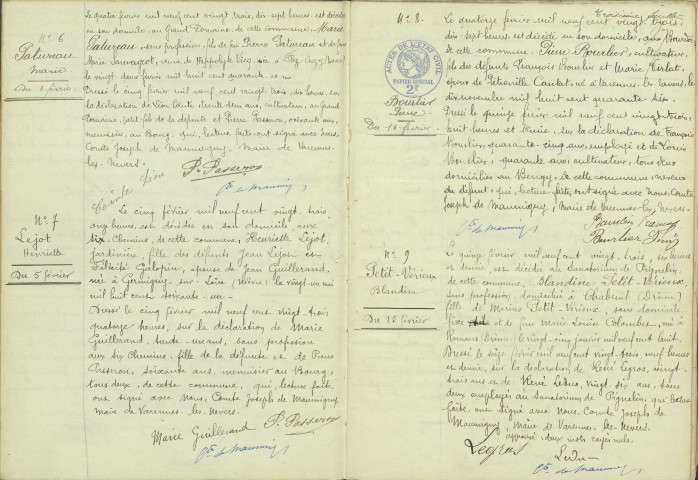 N° 6
Patureau
Marie
Du 4 février
Le quatre février mil neuf cent vingt trois, dix sept heures est décédée
en son domicile au Grand Domaine de cette commune, Marie
Patureau, sans profession, fille de feu Pierre Patureau et de feue
Marie Sauvaget, veuve de Hippolyte
vingt deux février mil huit cent quarante et un
Dressé le cinq février mil neuf cent vingt trois, dix heures sur
la déclaration de Léon Comte, trente deux ans, cultivateur, au Grand
Domaine, petit fils de la défunte et de Pierre Passeron, soixante ans,
menuisier, au Bourg, qui, lecture faite, ont signé avec Nous,
Comte Joseph de Maumigny, Maire de Varennes-
les-Nevers.
Comte Léon
P. Passeron
Cte de Maumigny
N° 7
Lejot
Henriette
Du 5 février
Le cinq février mil neuf cent vingt trois,
onze heures, est décédée en son domicile aux
six Chemins, de cette commune, Henriette Lejot,
jardinière, fille des défunts Jean Lejot et
Félicité Galopin, épouse de Jean Guillerand,
née à Germigny-sur-Loire (Nièvre) le vingt six mai
mil huit cent soixante un
Dressé le cinq février mil neuf cent vingt trois
quatorze heures, sur la déclaration de Marie
Guillerand, trente ans, sans profession
aux six Chemins, fille de la défunte et de Pierre
Passeron, soixante ans, menuisier au Bourg,
tous deux, de cette commune, qui, lecture faite,
ont signé avec Nous, Comte Joseph de Maumigny,
Maire de Varennes-les-Nevers.
Marie Guillerand P. Passeron
Cte de Maumigny
N° 8.
ACTES DE L'ÉTAT CIVIL
PAPIER SPÉCIAL
2F
Bourlier
Pierre
Du 14 février
Troisième feuillet
Le quatorze février mil neuf cent vingt trois
dix sept heures est décédé en son domicile, aux
de cette commune Pierre Bourlier, cultivateur,
fils des défunts François Bourlier et Marie
époux de Pétronille Cantat, né à Varennes-les-Nevers, le
dix novembre mil huit cent quarante six.
Dressé le quinze février mil neuf cent vingt trois,
huit heures et demie, sur la déclaration de François
Bourlier, quarante cinq ans, employé et de Louis
Bourlier, quarante ans, cultivateur, tous deux
domiciliés au de cette commune, neveux
du défunt, qui, lecture faite, ont signé avec Nous, Comte
Joseph de Maumigny, Maire de Varennes-les-Nevers.
Bourlier François
Cte de Maumigny
Bourlier
N° 9
Petit-Vérieux
Blandine
Du 15 février
Le quinze février mil neuf cent vingt trois, six heures
et demie, est décédé au Sanatorium de Pignelin,
de cette commune, Blandine Petit-Vérieux,
sans profession, domicilié à Chabeuil (Drôme)
fille de Marius Petit-Vérieux, sans domicile
fixe et de feue Marie Louise Colombet, né à
Romans Drôme le vingt cinq janvier mil neuf cent huit.
Dressé le seize février mil neuf cent vingt trois, neuf heures
et demie, sur la déclaration de René Legros, vingt
trois ans et de René Ledue, vingt six ans, tous
deux employés au Sanatorium de Pignelin, qui, lecture
faite, ont signé avec Nous, Comte Joseph de
Maumigny, Maire de Varennes-les-Nevers.
approuvé, deux mots rayés nuls.
Legros
Cte de Maumigny